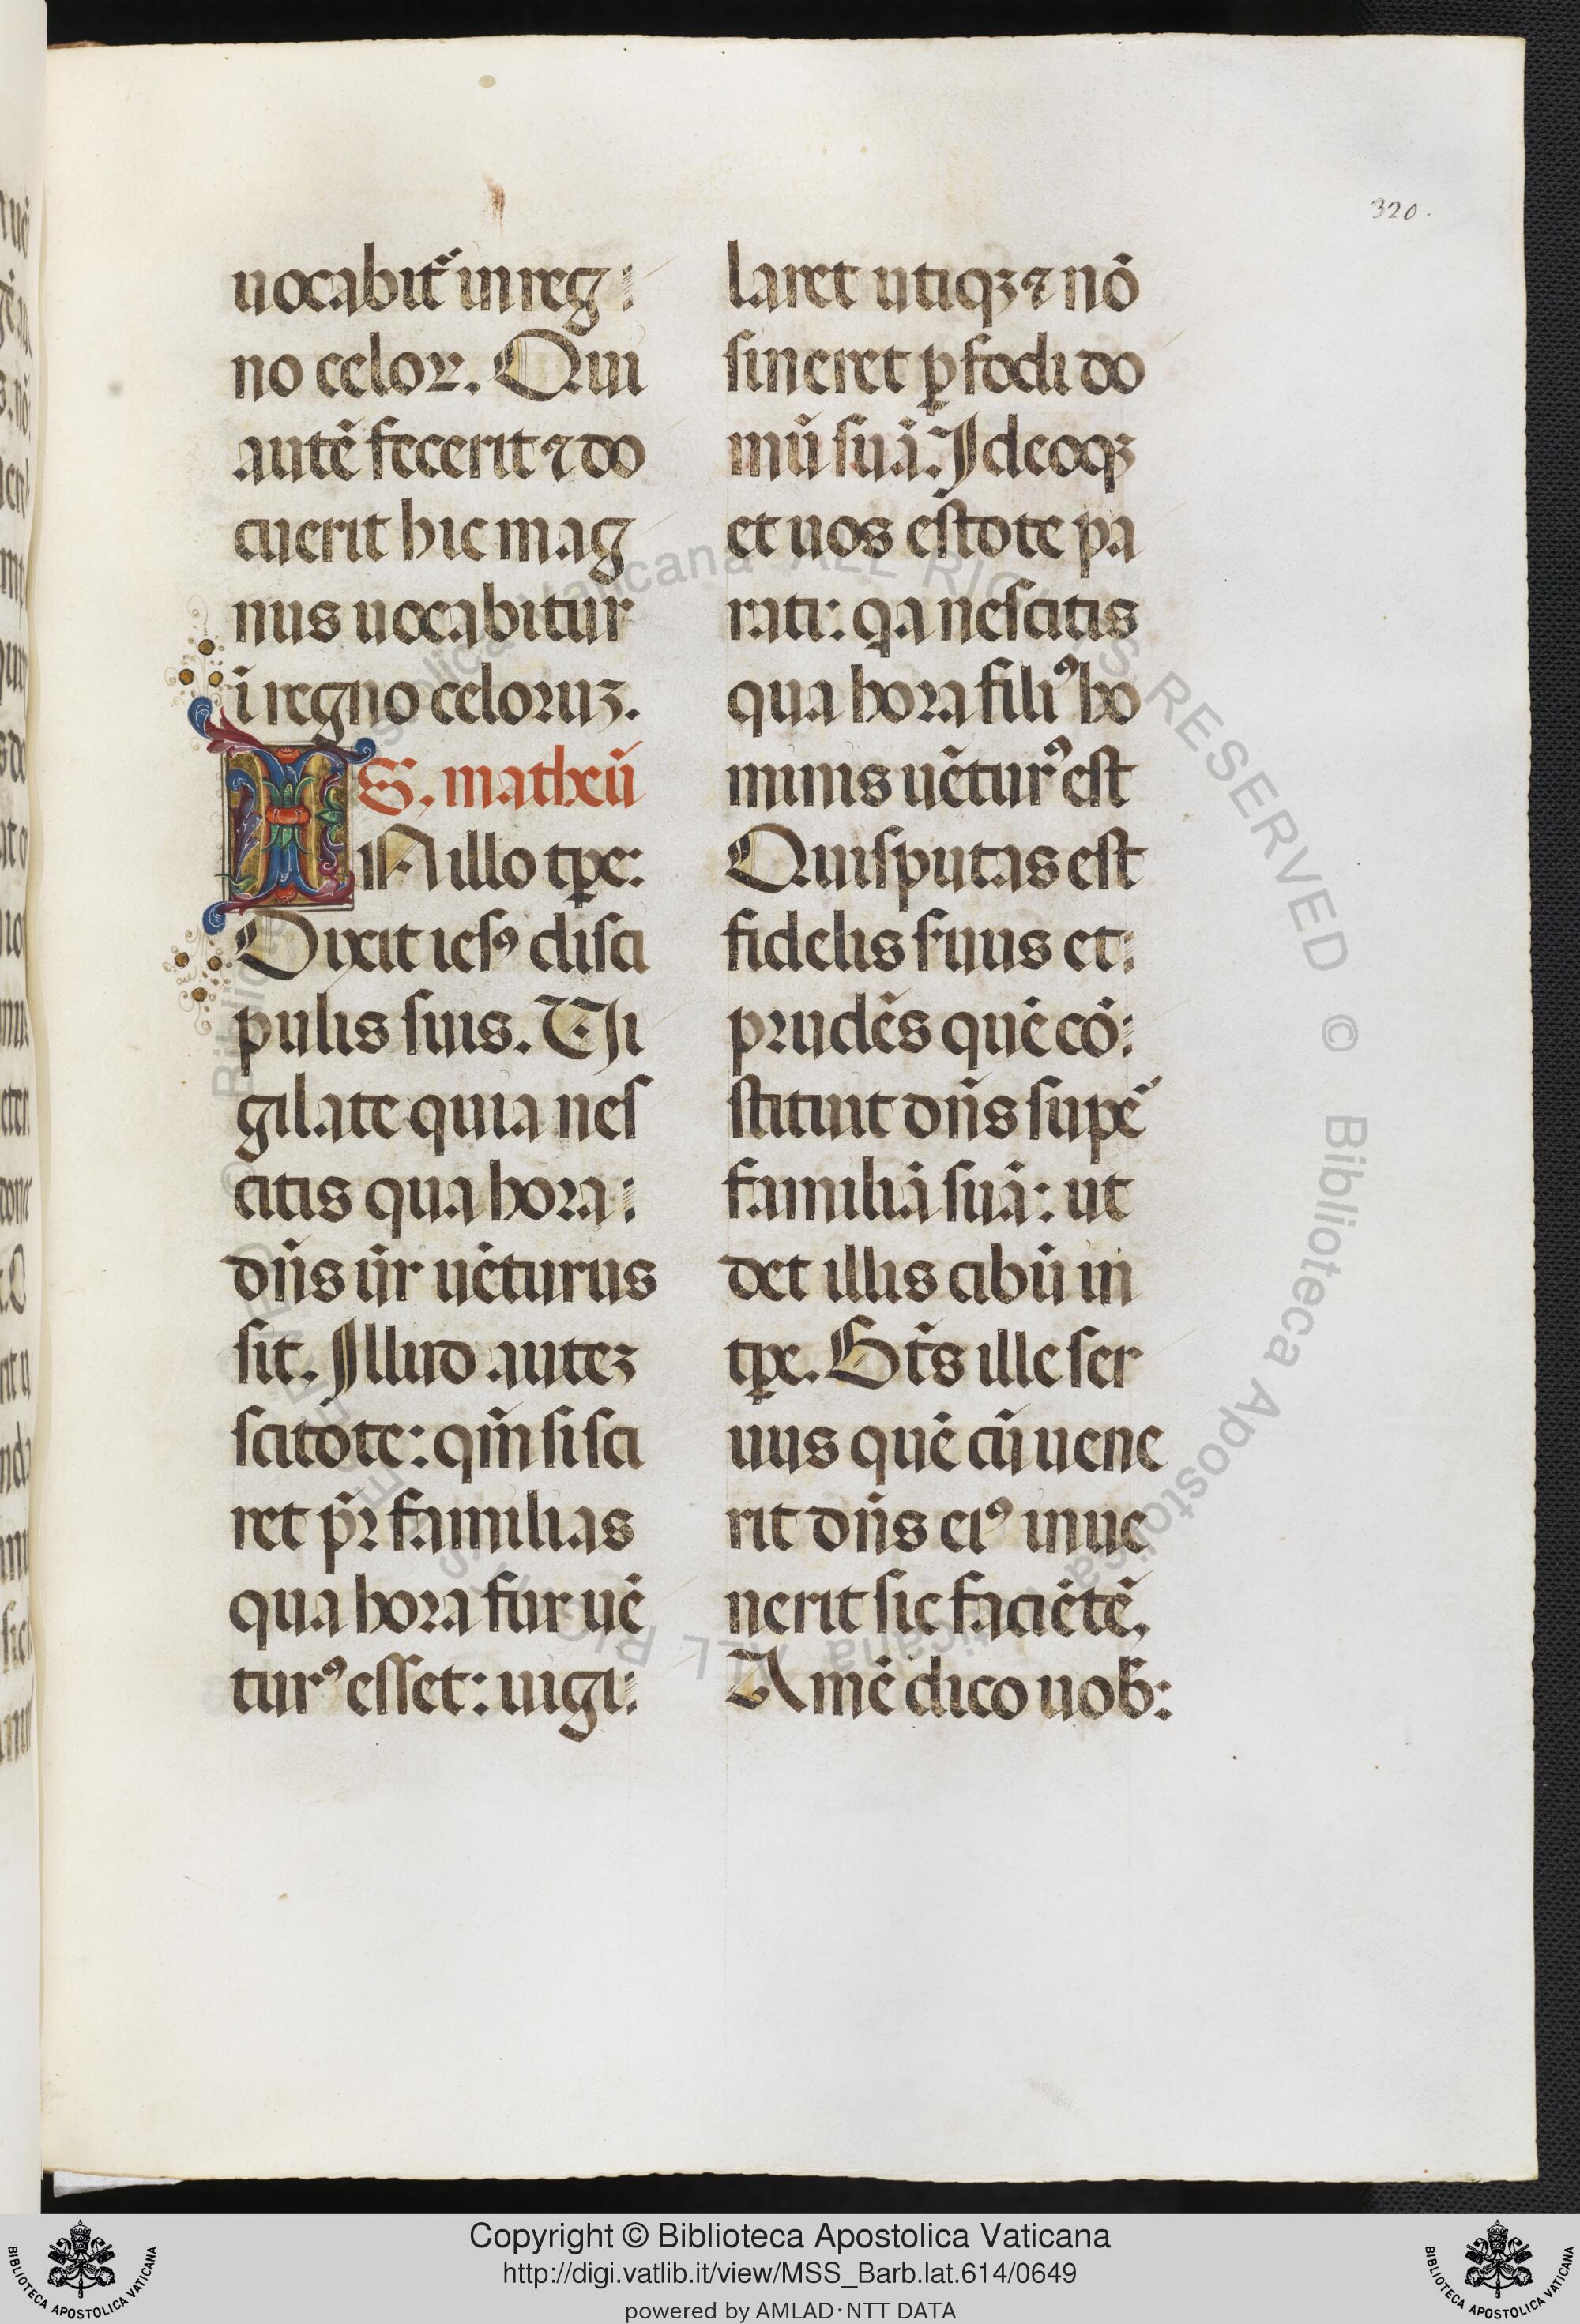 320.
uocabit᷑ in reg
no celoꝝ. Qui
autē fecerit ⁊ do
cuerit hic mag
nus uocabitur
ī regno celoruʒ.
S. matheū
IN illo tp̄e:
Dixit iesꝰ disci
pulis suis. Ui
gilate quia nes
citis qua hora
dn̄s ūr uēturus
sit. Illud auteʒ
scitote: qm̄ si sci
ret pr̄ familias
qua hora fur uē
turꝰ esset: uigi
laret utiqʒ ⁊ nō
sineret ꝑfodi do
mū suā. Ideoqʒ
et uos estote pa
rati: qa nescitis
qua hora filiꝰ ho
minis uēturꝰ est
Quis putas est
fidelis suus et
prudēs quē cō
stituit dn̄s supē
familiā suā: ut
det illis cibū in
tp̄e. Bt̄s ille ser
uus quē cū uene
rit dn̄s eiꝰ inue
nerit sic faciētē.
Amē dico uob:
Copyright © Biblioteca Apostolica Vaticana
http://digi.vatlib.it/view/MSS_Barb.lat.614/0649
powered by AMLAD·NTT DATA
BIBLIOTECA APOSTOLICA VATICANA
BIBLIOTECA APOSTOLICA VATICANA